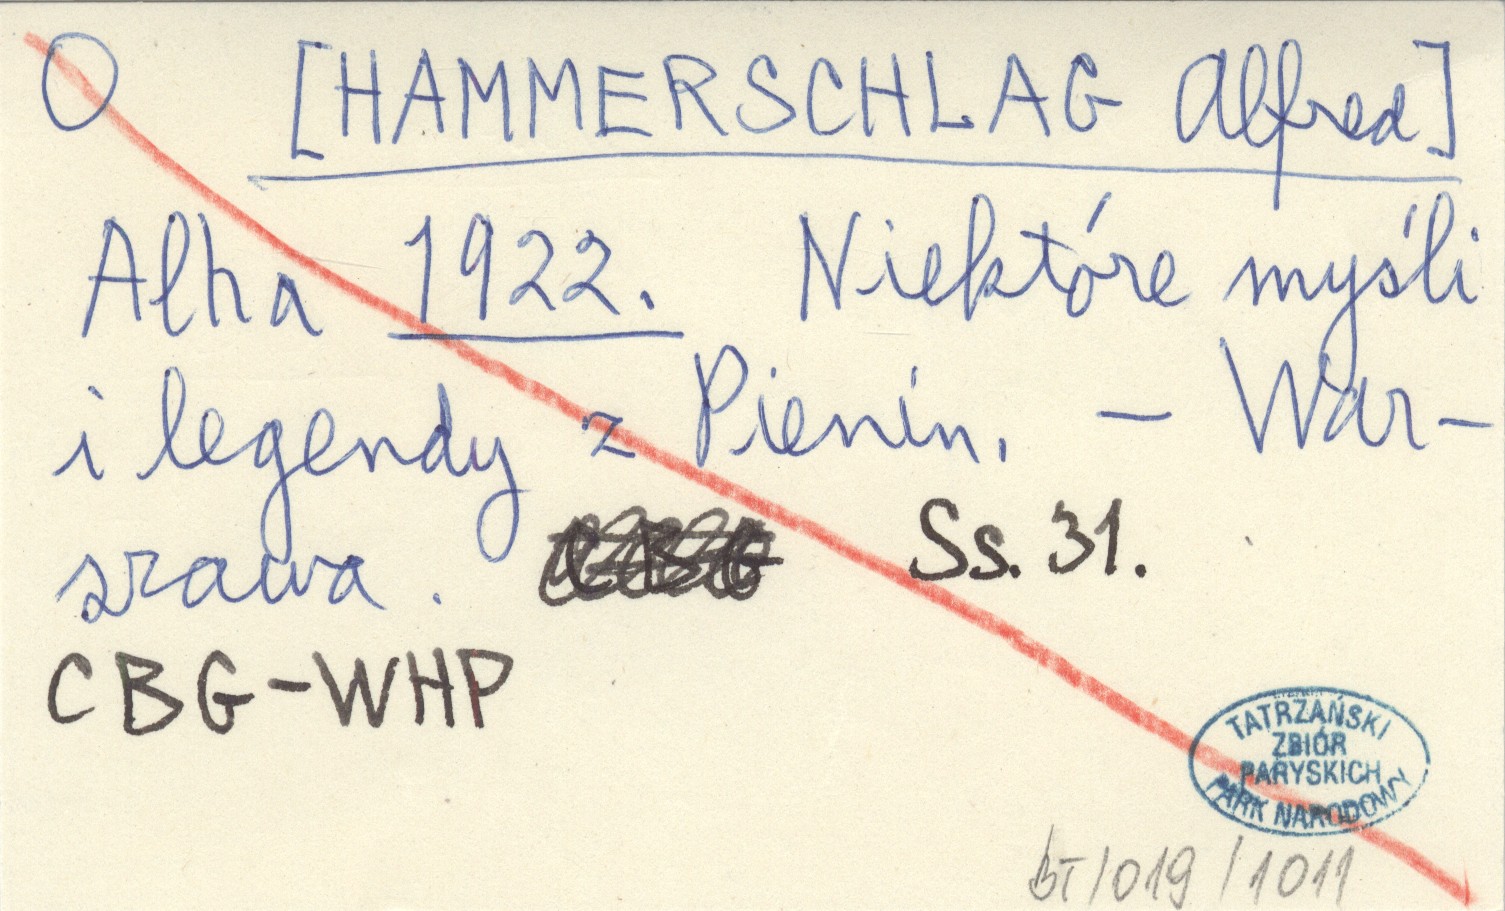 O [HAMMERSCHLAG Alfred]
Alha 1922. Niektóre myśli
i legendy z Pienin. – War-
szawa. CBG Ss. 31.
CBG-WHP
TATRZAŃSKI
ZBIÓR
PARYSKICH
PARK NARODOWY
BT/019/1011